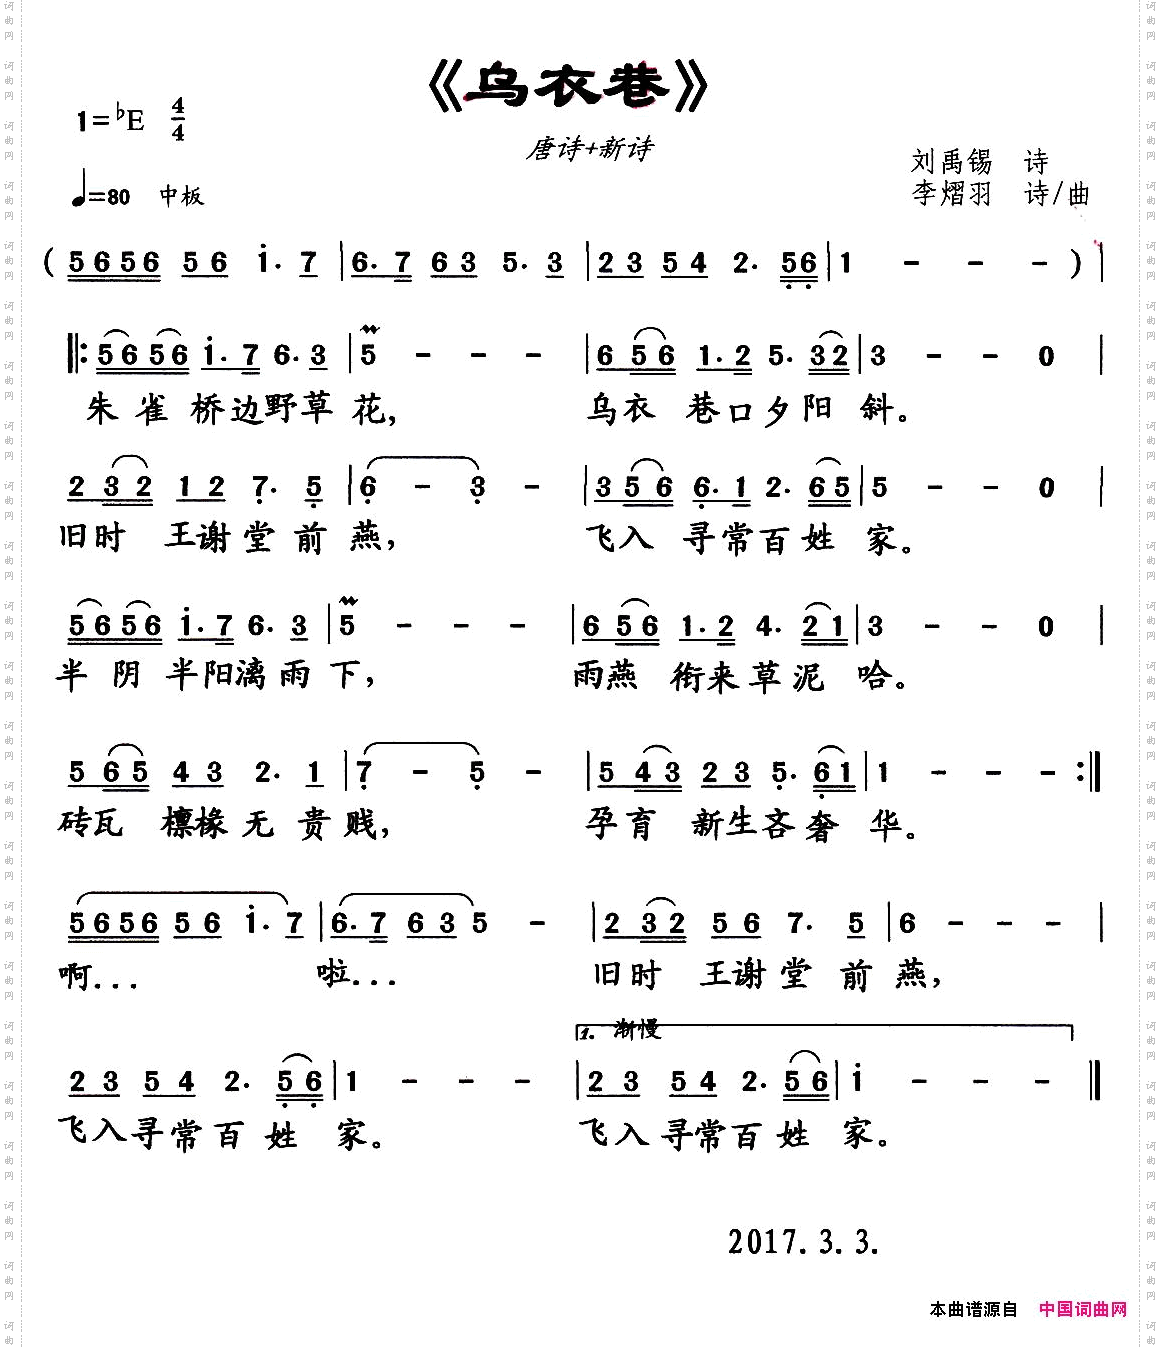 《乌衣巷》
唐诗+新诗
1=♭E 4/4
刘禹锡 诗
♩=80 中板
李熠羽 诗/曲
( 5 6 5 6 5 6 i· 7 | 6· 7 6 3 5· 3 | 2 3 5 4 2· 5 6 | 1 - - - ) |
‖: 5 6 5 6 i· 7 6· 3 | 5 - - - | 6 5 6 1· 2 5· 3 2 | 3 - - 0 |
朱雀 桥边野草花， 乌衣 巷口夕阳 斜。
2 3 2 1 2 7· 5 | 6 - 3 - | 3 5 6 6· 1 2· 6 5 | 5 - - 0 |
旧时 王谢堂前燕， 飞入 寻常百姓 家。
5 6 5 6 i· 7 6· 3 | 5 - - - | 6 5 6 1· 2 4· 2 1 | 3 - - 0 |
半阴 半阳漓雨下， 雨燕 衔来草泥 哈。
5 6 5 4 3 2· 1 | 7 - 5 - | 5 4 3 2 3 5· 6 1 | 1 - - - :‖
砖瓦 檩椽无贵贱， 孕育 新生吝奢 华。
5 6 5 6 5 6 i· 7 | 6· 7 6 3 5 - | 2 3 2 5 6 7· 5 | 6 - - - |
啊... 啦... 旧时 王谢堂前燕，
1. 渐慢
2 3 5 4 2· 5 6 | 1 - - - | 2 3 5 4 2· 5 6 | i - - - ‖
飞入寻常百姓 家。 飞入寻常百姓 家。
2017.3.3.
本曲谱源自 中国词曲网